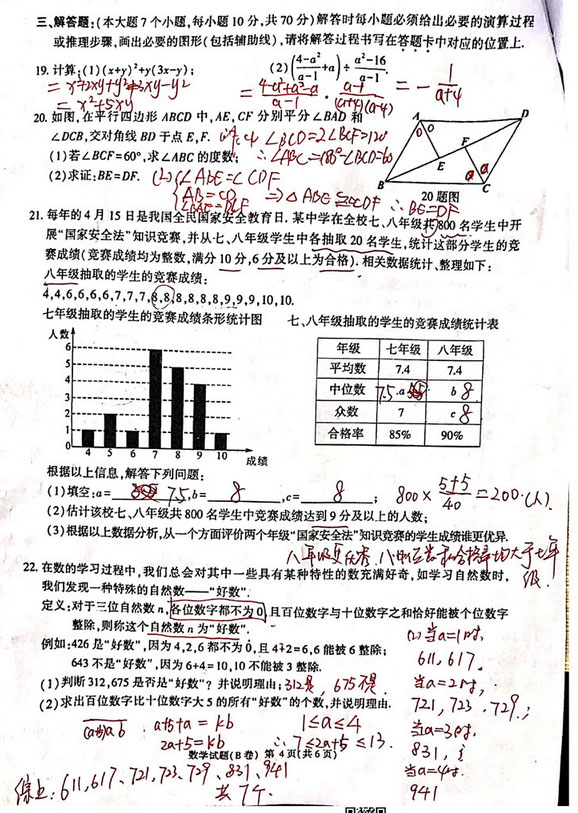 三、解答题:(本大题7个小题,每小题10分,共70分)解答时每小题必须给出必要的演算过程
或推理步骤,画出必要的图形(包括辅助线),请将解答过程书写在答题卡中对应的位置上.
19. 计算:(1)(x+y)²+y(3x-y); (2)(4-a²/a-1+a)÷a²-16/a-1.
= x²+2xy+y²+3xy-y² = 4-a²+a²-a/a-1 · a-1/(a+4)(a-4) = -1/a+4
= x²+5xy
20. 如图,在平行四边形ABCD中,AE,CF分别平分∠BAD和
∠DCB,交对角线BD于点E,F. ∠BCD=2∠BCF=120°
(1)若∠BCF=60°,求∠ABC的度数; ∴∠ABC=180°-∠BCD=60°
(2)求证:BE=DF. (2) {∠ABE=∠CDF
AB=CD ⇒△ABE≌△CDF ∴BE=DF
∠BAE=∠DCF
A D F E B C
20题图
21. 每年的4月15日是我国全民国家安全教育日.某中学在全校七、八年级共800名学生中开
展“国家安全法”知识竞赛,并从七、八年级学生中各抽取20名学生,统计这部分学生的竞
赛成绩(竞赛成绩均为整数,满分10分,6分及以上为合格).相关数据统计、整理如下:
八年级抽取的学生的竞赛成绩:
4,4,6,6,6,6,7,7,7,8,8,8,8,8,8,9,9,9,10,10.
七年级抽取的学生的竞赛成绩条形统计图 七、八年级抽取的学生的竞赛成绩统计表
人数
6
5
4
3
2
1
0
4 5 6 7 8 9 10 成绩
年级 七年级 八年级
平均数 7.4 7.4
中位数 7.5 a b 8
众数 7 c 8
合格率 85% 90%
根据以上信息,解答下列问题:
(1)填空:a= 7.5 ,b= 8 ,c= 8 ; 800×5+5/40=200(人)
(2)估计该校七、八年级共800名学生中竞赛成绩达到9分及以上的人数;
(3)根据以上数据分析,从一个方面评价两个年级“国家安全法”知识竞赛的学生成绩谁更优异.
八年级更优秀.八中位数和合格率均大于七年
级.
22. 在数的学习过程中,我们总会对其中一些具有某种特性的数充满好奇,如学习自然数时,
我们发现一种特殊的自然数——“好数”.
定义:对于三位自然数n,各位数字都不为0,且百位数字与十位数字之和恰好能被个位数字
整除,则称这个自然数n为“好数”.
例如:426是“好数”,因为4,2,6都不为0,且4+2=6,6能被6整除;
643不是“好数”,因为6+4=10,10不能被3整除.
(1)判断312,675是否是“好数”?并说明理由; 312是,675不是.
(2)求出百位数字比十位数字大5的所有“好数”的个数,并说明理由.
(a+5)ab a+5+a=kb 1≤a≤4
2a+5=kb ∴7≤2a+5≤13.
(2)当a=1时,
611,617.
当a=2时,
721,723,729;
当a=3时,
831,;
当a=4时.
941
数学试题(B卷) 第4页(共6页)
综上:611,617、721,723、729、831、941
共7个.